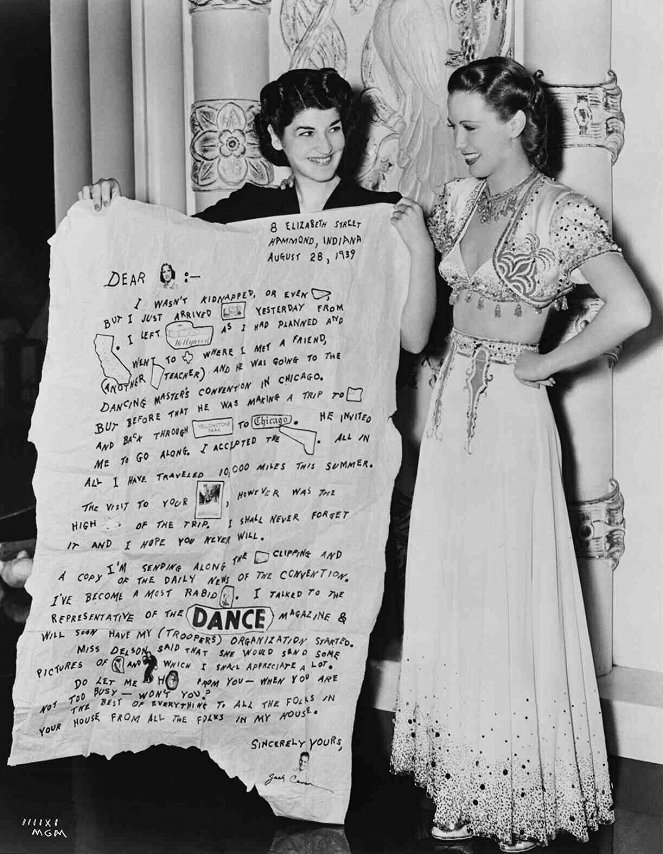 8 ELIZABETH STREET
HAMMOND, INDIANA
AUGUST 28, 1939
DEAR :-
I WASN'T KIDNAPPED, OR EVEN ,
BUT I JUST ARRIVED YESTERDAY FROM
. I LEFT Hollywood AS I HAD PLANNED AND
WENT TO WHERE I MET A FRIEND,
(ANOTHER TEACHER) AND HE WAS GOING TO THE
DANCING MASTER'S CONVENTION IN CHICAGO.
BUT BEFORE THAT HE WAS MAKING A TRIP TO
AND BACK THROUGH YELLOWSTONE PARK TO Chicago. HE INVITED
ME TO GO ALONG. I ACCEPTED THE . ALL IN
ALL I HAVE TRAVELED 10,000 MILES THIS SUMMER.
THE VISIT TO YOUR , HOWEVER WAS THE
HIGH OF THE TRIP. I SHALL NEVER FORGET
IT AND I HOPE YOU NEVER WILL.
I'M SENDING ALONG THE CLIPPING AND
A COPY OF THE DAILY NEWS OF THE CONVENTION.
I'VE BECOME A MOST RABID . I TALKED TO THE
REPRESENTATIVE OF THE DANCE MAGAZINE &
WILL SOON HAVE MY (TROOPERS) ORGANIZATION STARTED.
MISS DELSON SAID THAT SHE WOULD SEND SOME
PICTURES OF AND WHICH I SHALL APPRECIATE A LOT.
DO LET ME H FROM YOU - WHEN YOU ARE
NOT TOO BUSY - WON'T YOU?
THE BEST OF EVERYTHING TO ALL THE FOLKS IN
YOUR HOUSE FROM ALL THE FOLKS IN MY HOUSE.
SINCERELY YOURS,
Jack
MGM